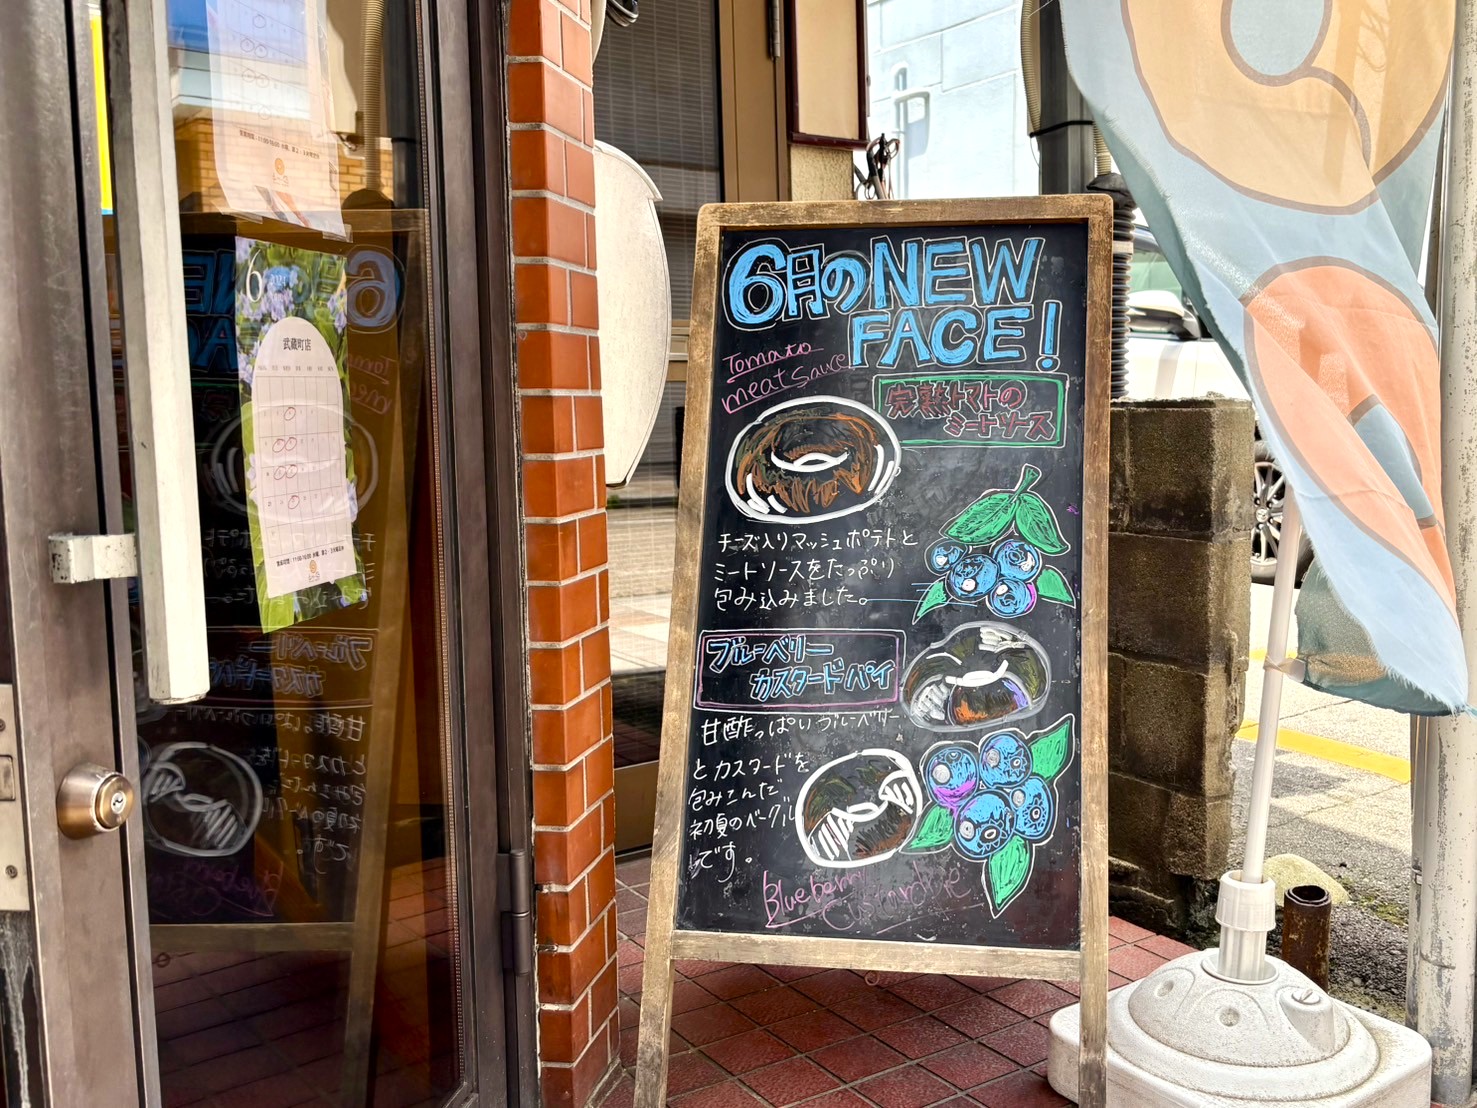 6月のNEW
FACE!
Tomato
meat sauce
完熟トマトの
ミートソース
チーズ入りマッシュポテトと
ミートソースをたっぷり
包み込みました。
ブルーベリー
カスタードパイ
甘酢っぱいブルーベリー
とカスタードを
包みこんだ
初夏のベーグル
です。
Blueberry
Custard pie
6
武蔵町店